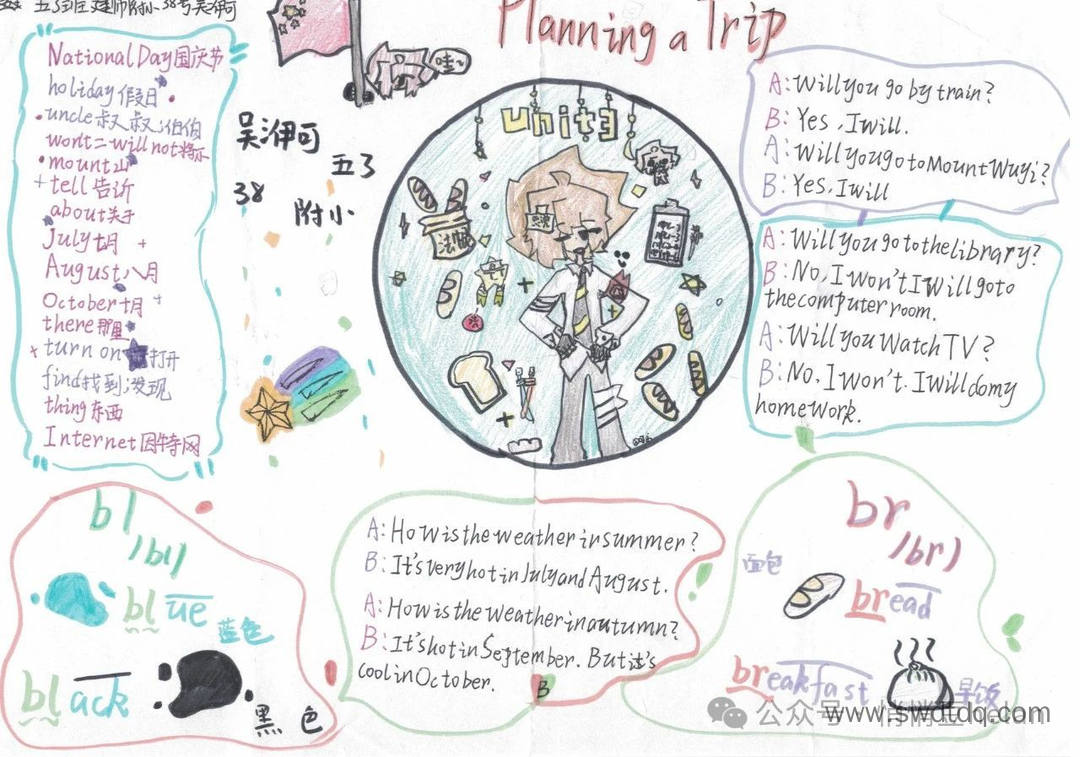 五3班 建师附小 38号 吴洢可
Planning a Trip
哇~
National Day 国庆节
holiday 假日
uncle 叔叔;伯伯
won't = will not 将不
mount 山
tell 告诉
about 关于
July 七月
August 八月
October 十月
there 那里
turn on 打开
find 找到;发现
thing 东西
Internet 因特网
吴洢可
五3
38 附小
unit3
法棍
A: Will you go by train?
B: Yes, I will.
A: Will you go to Mount Wuyi?
B: Yes, I will
A: Will you go to the library?
B: No, I won't I will go to
the computer room.
A: Will you Watch TV?
B: No, I won't. I will do my
homework.
bl
/bl/
blue
蓝色
black
黑色
A: How is the weather in summer?
B: It's very hot in July and August.
A: How is the weather in autumn?
B: It's hot in September. But it's
cool in October.
B
br
/br/
面包
bread
breakfast
早饭
公众号
www.swdtdq.com